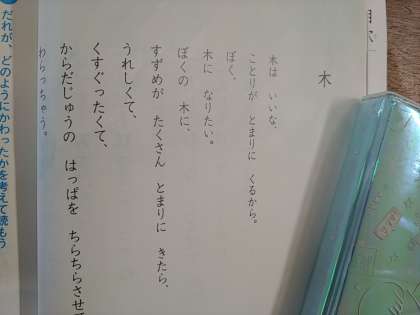 木
木は いいな、
ことりが とまりに くるから。
ぼく、
木に なりたい。
ぼくの 木に、
すずめが たくさん とまりに きたら、
うれしくて、
くすぐったくて、
からだじゅうの はっぱを ちらちらさせて
わらっちゃう。
だれが、どのようにかわったかを考えて読もう